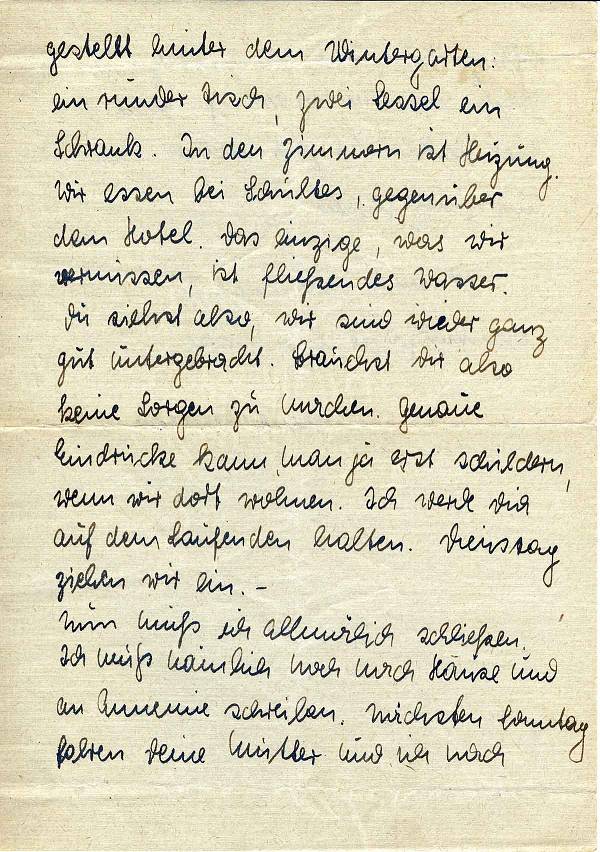 gestellt hinter dem Wintergarten:
ein runder Tisch, zwei Sessel ein
Schrank. In den Zimmern ist Heizung.
Wir essen bei Schultes, gegenüber
dem Hotel. Das einzige, was wir
vermissen, ist fließendes Wasser.
Du siehst also, wir sind wieder ganz
gut untergebracht. Brauchst Dir also
keine Sorgen zu machen. Genaue
Eindrücke kann man ja erst schildern,
wenn wir dort wohnen. Ich werde Dich
auf dem Laufenden halten. Dienstag
ziehen wir ein. –
Nun muß ich allmählich schließen.
Ich muß nämlich noch nach Hause und
an Annemie schreiben. Nächsten Sonntag
fahren Deine Mutter und ich nach